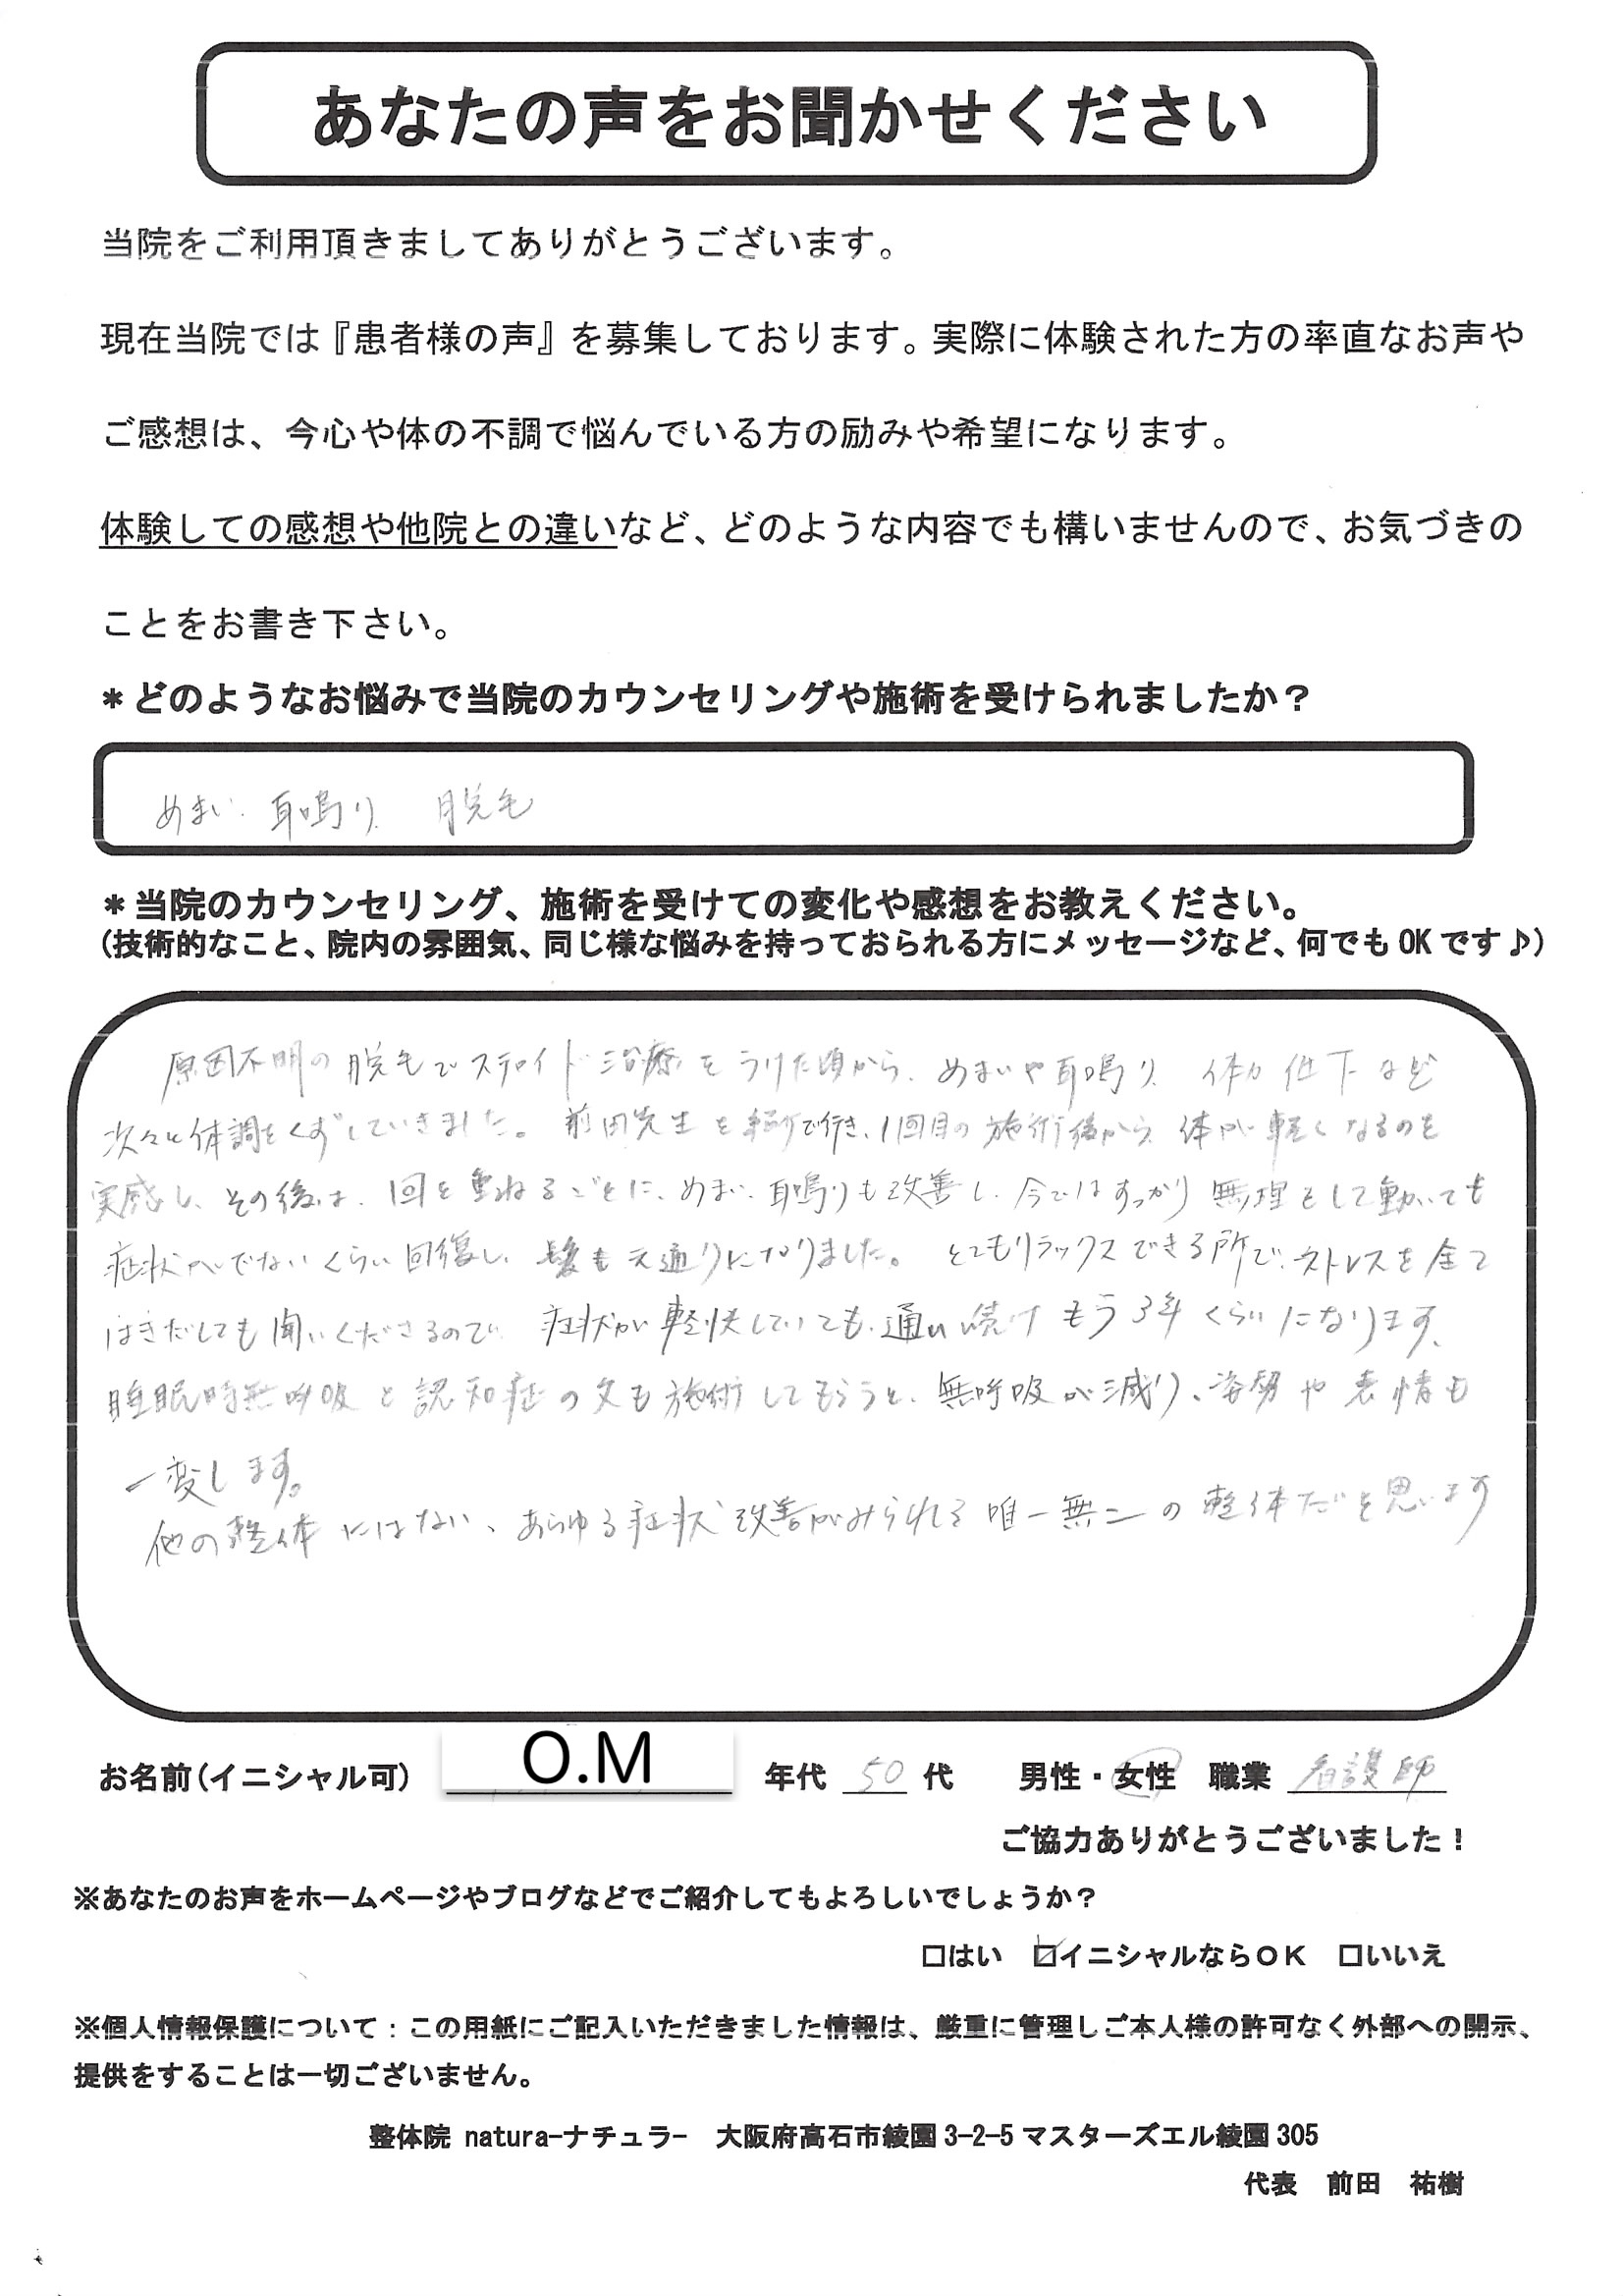 あなたの声をお聞かせください
当院をご利用頂きましてありがとうございます。
現在当院では『患者様の声』を募集しております。実際に体験された方の率直なお声や
ご感想は、今心や体の不調で悩んでいる方の励みや希望になります。
体験しての感想や他院との違いなど、どのような内容でも構いませんので、お気づきの
ことをお書き下さい。
＊どのようなお悩みで当院のカウンセリングや施術を受けられましたか？
めまい、耳鳴り、脱毛
＊当院のカウンセリング、施術を受けての変化や感想をお教えください。
(技術的なこと、院内の雰囲気、同じ様な悩みを持っておられる方にメッセージなど、何でもOKです♪)
原因不明の脱毛でステロイド治療をうけた頃から、めまいや耳鳴り、体力低下など
次々と体調をくずしていきました。前田先生を紹介で行き、1回目の施術後から、体が軽くなるのを
実感し、その後は、回を重ねるごとに、めまい、耳鳴りも改善し、今ではすっかり無理をして動いても
症状がでないくらい回復し、髪も元通りになりました。とてもリラックスできる所で、ストレスを全て
はきだしても聞いくださるので、症状が軽快していても、通い続けもう3年くらいになります。
睡眠時無呼吸と認知症の父も施術してもらうと、無呼吸が減り、姿勢や表情も
一変します。
他の整体にはない、あらゆる症状改善がみられる唯一無二の整体だと思います
お名前(イニシャル可) O.M 年代 50 代 男性・女性 職業 看護師
ご協力ありがとうございました！
※あなたのお声をホームページやブログなどでご紹介してもよろしいでしょうか？
□はい ☑イニシャルならOK □いいえ
※個人情報保護について：この用紙にご記入いただきました情報は、厳重に管理しご本人様の許可なく外部への開示、
提供をすることは一切ございません。
整体院 natura-ナチュラ- 大阪府高石市綾園3-2-5マスターズエル綾園305
代表 前田 祐樹